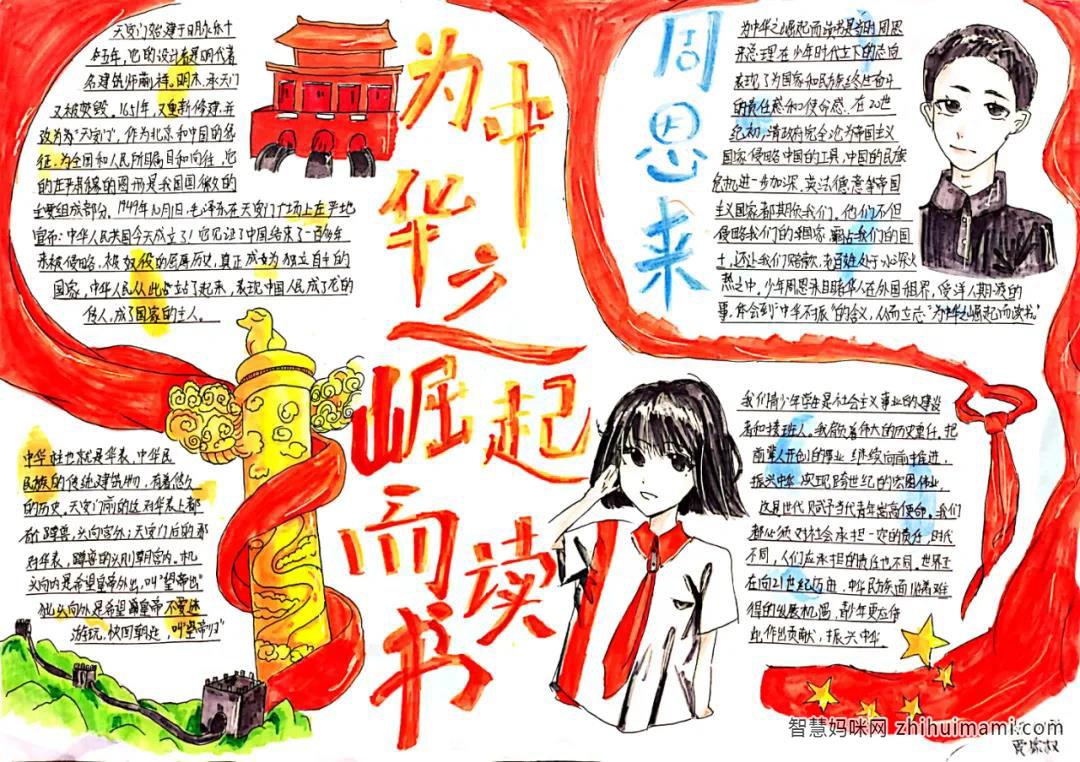 为中华之崛起而读书
周恩来
天安门始建于明永乐十
名建筑师蒯祥。明末,承天门
又被焚毁。1651年,又重新修建,并
改为为"天安门",作为北京和中国的名
征,为全国和人民所瞩目和向往,它
主要组成部分。1949年10月1日,毛泽东在天安门广场上在平地
宣布:中华人民共国今天成立了!它见证了中国结束了一百多年
来被侵略、被奴役的屈辱历史,真正成为独立自主的
国家,中华人民从此站了起来,表现中国人民成了龙的
传人,成了国家的主人。
为中华之崛起而读书是当时周恩
来总理在少年时代立下的志向
表现了为国家和民族终于奋斗
的责任感和使命感。在20世
纪初,清政府完全沦为帝国主义
国家侵略中国的工具,中国的民族
危机进一步加深。英法德意等帝国
主义国家都期欺我们。他们不但
侵略我们的祖国家,霸占我们的国
土,还让我们赔款,老百姓处于水深火
热之中,少年周恩来目睹华人在外国租界,受洋人欺凌的
事,体会到"中华不振"的含义,从而立志"为中华之崛起而读书。"
中华柱也就是华表,中华民
民族的传统建筑物,有着悠久
的历史。天安门前的这对华表上都
有蹲兽,头向宫外;天安门后的那
对华表,蹲兽的头则朝宫内。
头向内是希望皇帝外出,叫"望帝出"
游玩,快回朝廷,叫"望帝归"
我们青少年学生是社会主义事业的建设
者和接班人,我们肩负着伟大的历史重任,把
前辈人开创的事业继续向前推进,
振兴中华,实现跨世纪的宏图伟业,
这是世代赋予当代青年崇高使命。我们
都必须对社会承担一定的责任,时代
不同,人们应承担的责任也不同。世界正
在向21世纪迈进,中华民族面临着难
得的发展机遇,青年更应作
出作出贡献,振兴中华
智慧妈咪网 zhihuimami.com